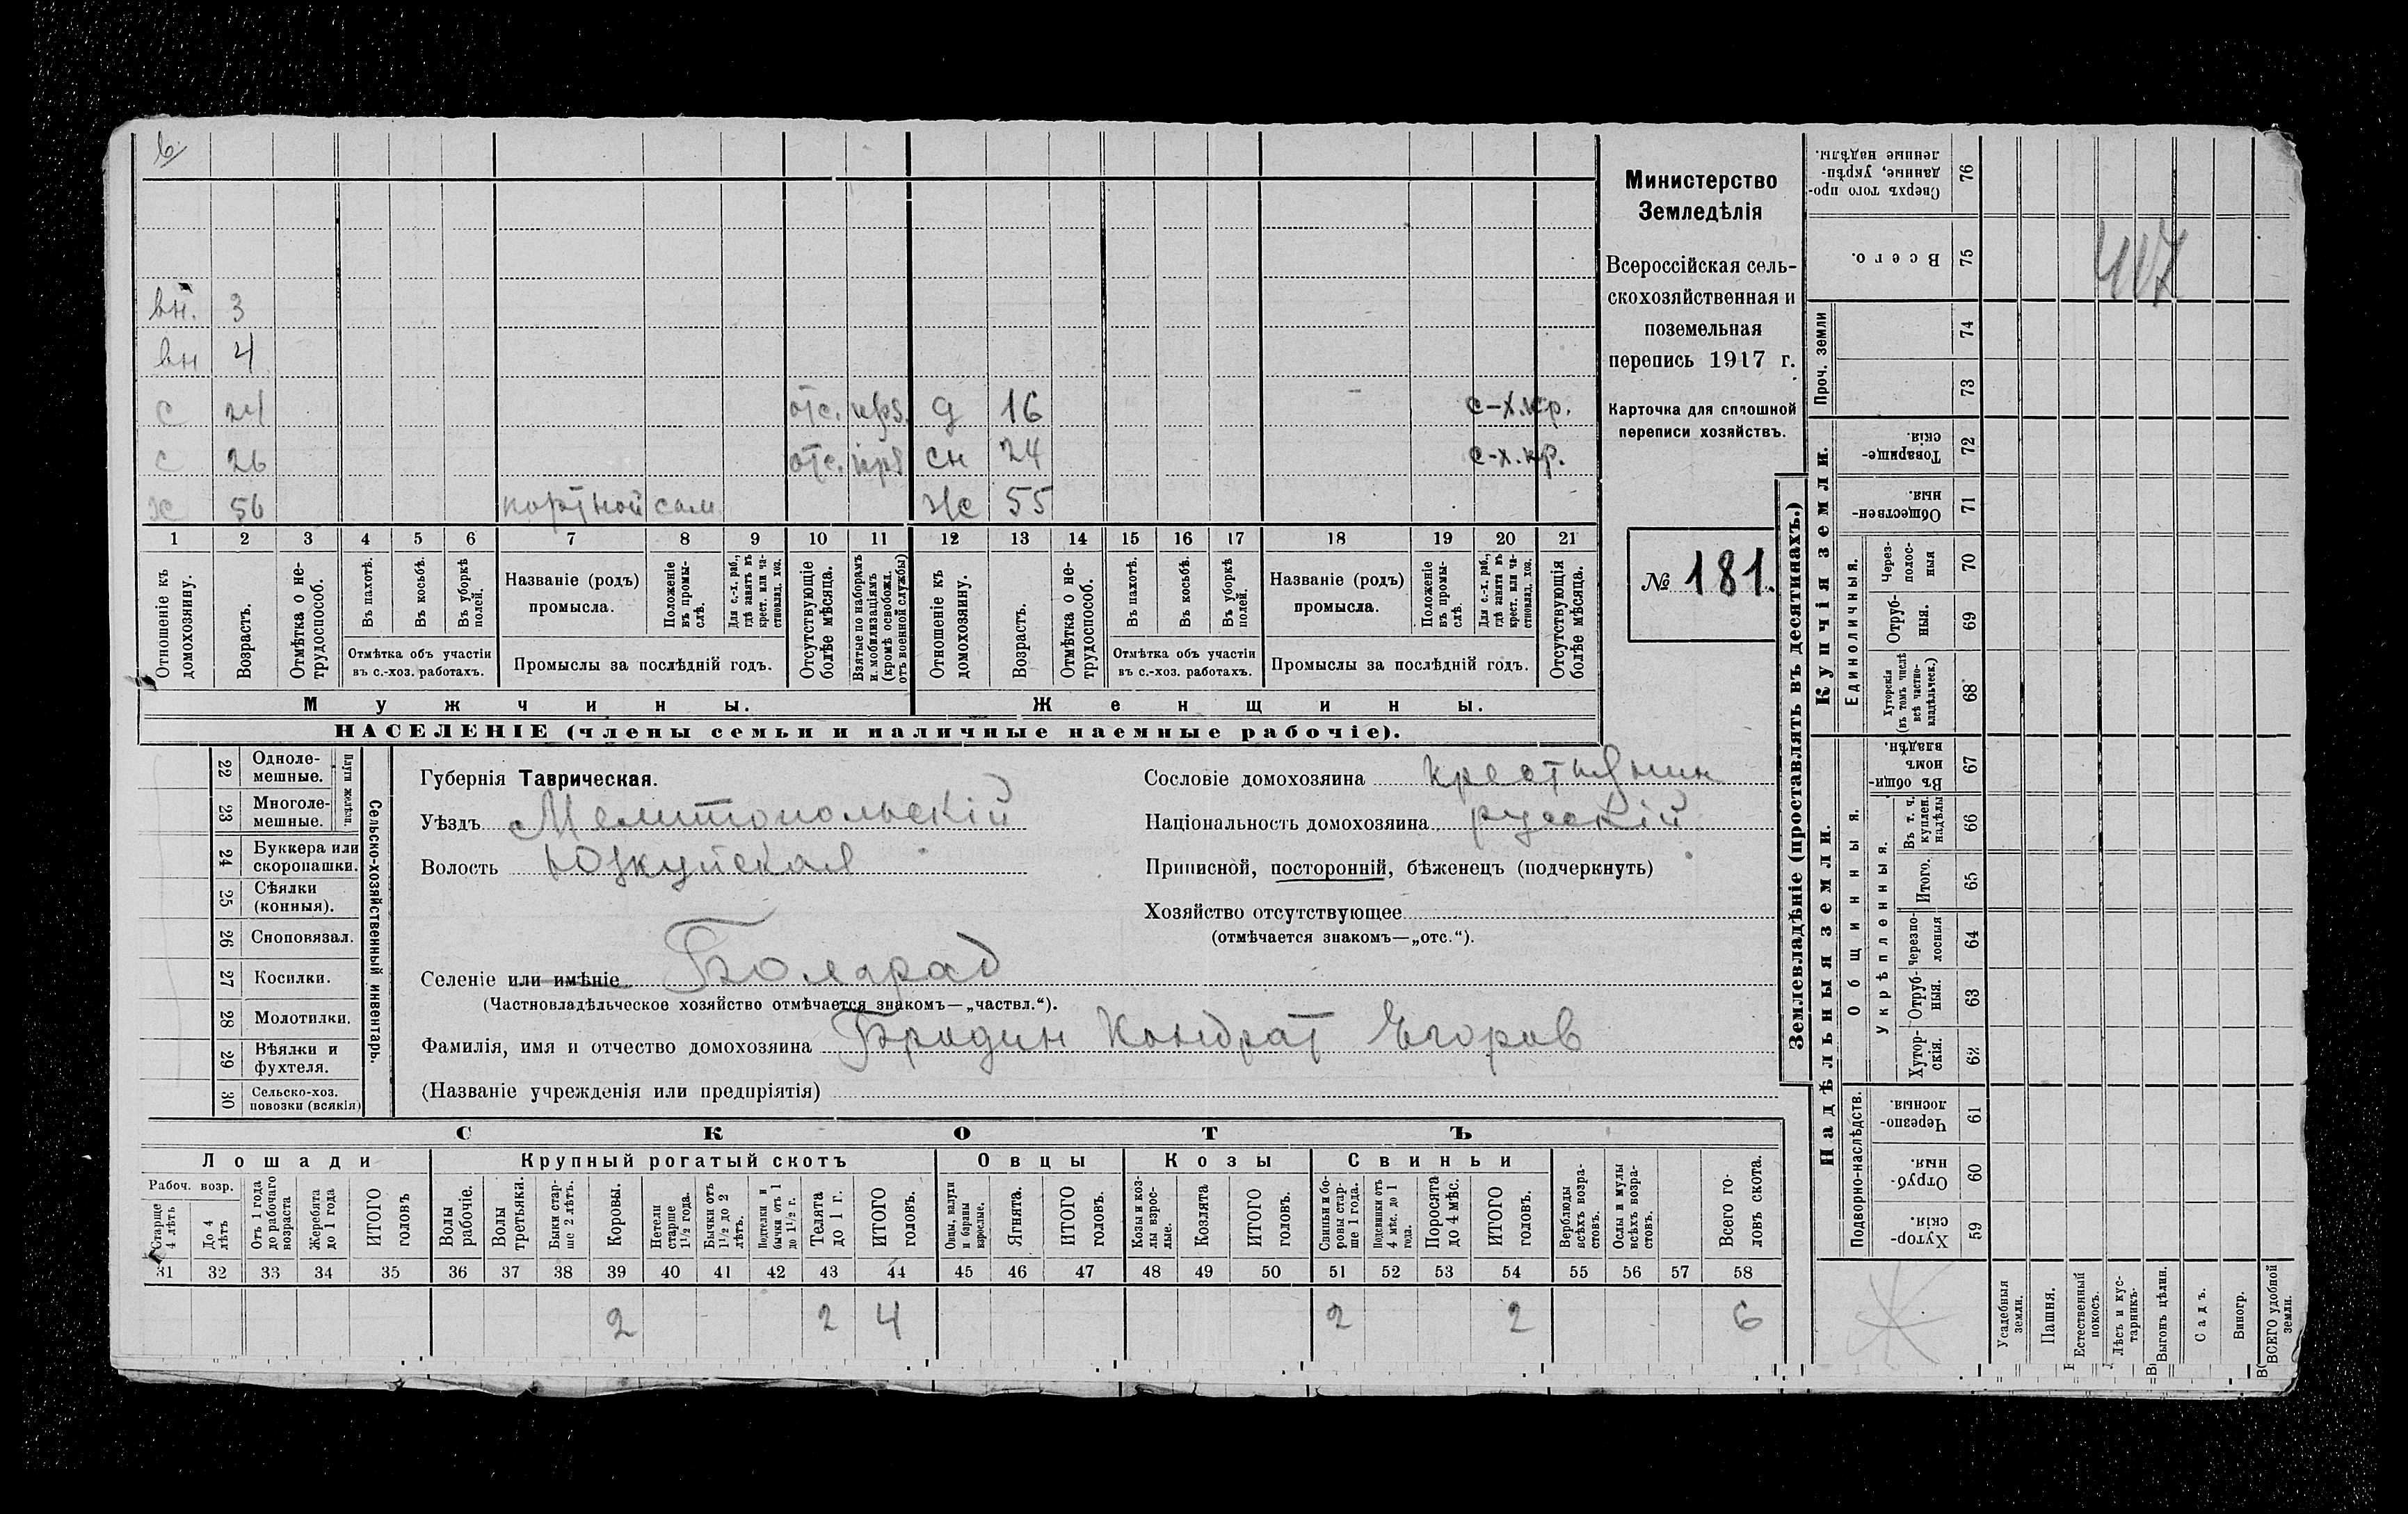 6.
вн. 3
вн 4
с 24 отс. д 16 с-х.кр.
с 26 отс. сн 24 с-х.кр.
х 56 портной сам Же 55
1 2 3 4 5 6 7 8 9 10 11 12 13 14 15 16 17 18 19 20 21
Отношеніе къ домохозяину.
Возрастъ.
Отмѣтка о не-трудоспособ.
Въ пахотѣ.
Въ косьбѣ.
Въ уборкѣ полей.
Отмѣтка объ участіи
въ с.-хоз. работахъ.
Названіе (родъ)
промысла.
Положеніе въ промы-слѣ.
Для с.-х. раб., гдѣ занятъ въ крест. или ча-стновлад. хоз.
Промыслы за послѣдній годъ.
Отсутствующіе болѣе мѣсяца.
Взятые по наборамъ и. мобилизаціямъ (кромѣ освобожд. отъ военной службы)
Отношеніе къ домохозяину.
Возрастъ.
Отмѣтка о не-трудоспособ.
Въ пахотѣ.
Въ косьбѣ.
Въ уборкѣ полей.
Отмѣтка объ участіи
въ с.-хоз. работахъ.
Названіе (родъ)
промысла.
Положеніе въ промы-слѣ.
Для с.-х. раб., гдѣ занята въ крест. или ча-стновлад. хоз.
Промыслы за послѣдній годъ.
Отсутствующія болѣе мѣсяца.
Мужчины. Женщины.
НАСЕЛЕНІЕ (члены семьи и наличные наемные рабочіе).
Министерство
Земледѣлія
Всероссійская сель-
скохозяйственная и
поземельная
перепись 1917 г.
Карточка для сплошной
переписи хозяйствъ.
№ 181.
22 Одноле-мешные.
23 Многоле-мешные.
Плуги желѣзн.
24 Буккера или скоропашки.
25 Сѣялки (конныя).
26 Сноповязал.
27 Косилки.
28 Молотилки.
29 Вѣялки и фухтеля.
30 Сельско-хоз. повозки (всякія)
Сельско-хозяйственный инвентарь.
Губернія Таврическая.
Уѣздъ Мелитопольскій
Волость Юзкуйская
Селеніе или имѣніе Болград
(Частновладѣльческое хозяйство отмѣчается знакомъ—„частвл.“).
Фамилія, имя и отчество домохозяина Бридин Кондрат Егоров
(Названіе учрежденія или предпріятія)
Сословіе домохозяина крестьянин
Національность домохозяина русскій
Приписной, посторонній, бѣженецъ (подчеркнуть)
Хозяйство отсутствующее
(отмѣчается знакомъ—„отс.“).
СКОТЪ
Лошади Крупный рогатый скотъ Овцы Козы Свиньи
Рабоч. возр.
Старше 4 лѣтъ
До 4 лѣтъ
Отъ 1 года до рабочаго возраста
Жеребята до 1 года
ИТОГО головъ
Волы рабочіе.
Волы третьяки.
Быки стар-ше 2 лѣтъ.
Коровы.
Нетели старше 1½ года.
Бычки отъ 1½ до 2 лѣтъ.
Подтелки и бычки отъ 1 до 1½ г.
Телята до 1 г.
ИТОГО головъ.
Овцы, валухи и бараны взрослые.
Ягнята.
ИТОГО головъ.
Козы и коз-лы взрос-лые.
Козлята
ИТОГО головъ.
Свиньи и бо-ровы стар-ше 1 года.
Подсвинки отъ 4 мѣс. до 1 года.
Поросята до 4 мѣс.
ИТОГО головъ.
Верблюды всѣхъ возра-стовъ.
Ослы и мулы всѣхъ возра-стовъ.
Всего го-ловъ скота.
31 32 33 34 35 36 37 38 39 40 41 42 43 44 45 46 47 48 49 50 51 52 53 54 55 56 57 58
2 2 4 2 2 6
Землевладѣніе (проставлять въ десятинахъ.)
Купчія земли.
Надѣльныя земли.
76 Сверхъ того про-данные, укрѣп-ленные надѣлы.
75 Всего.
Проч. земли
74
73
72 Товарище-скія.
71 Обществен-ныя.
Единоличныя.
70 Через-полос-ныя
69 Отруб-ныя.
68 Хуторскія (въ томъ числѣ всѣ частно-владѣльческ.)
67 Въ общи-номъ владѣн.
Общинныя.
Укрѣпленныя.
66 Въ т. ч. куплен. надѣлы
65 Итого.
64 Черезпо-лосныя
63 Отруб-ныя.
62 Хутор-скія.
Подворно-наслѣдств.
61 Черезпо-лосныя.
60 Отруб-ныя.
59 Хутор-скія.
417
Усадебныя земли.
Пашня.
Естественный покосъ.
Лѣсъ и кус-тарникъ.
Выгонъ цѣлин.
Садъ.
Виногр.
ВСЕГО удобной земли.